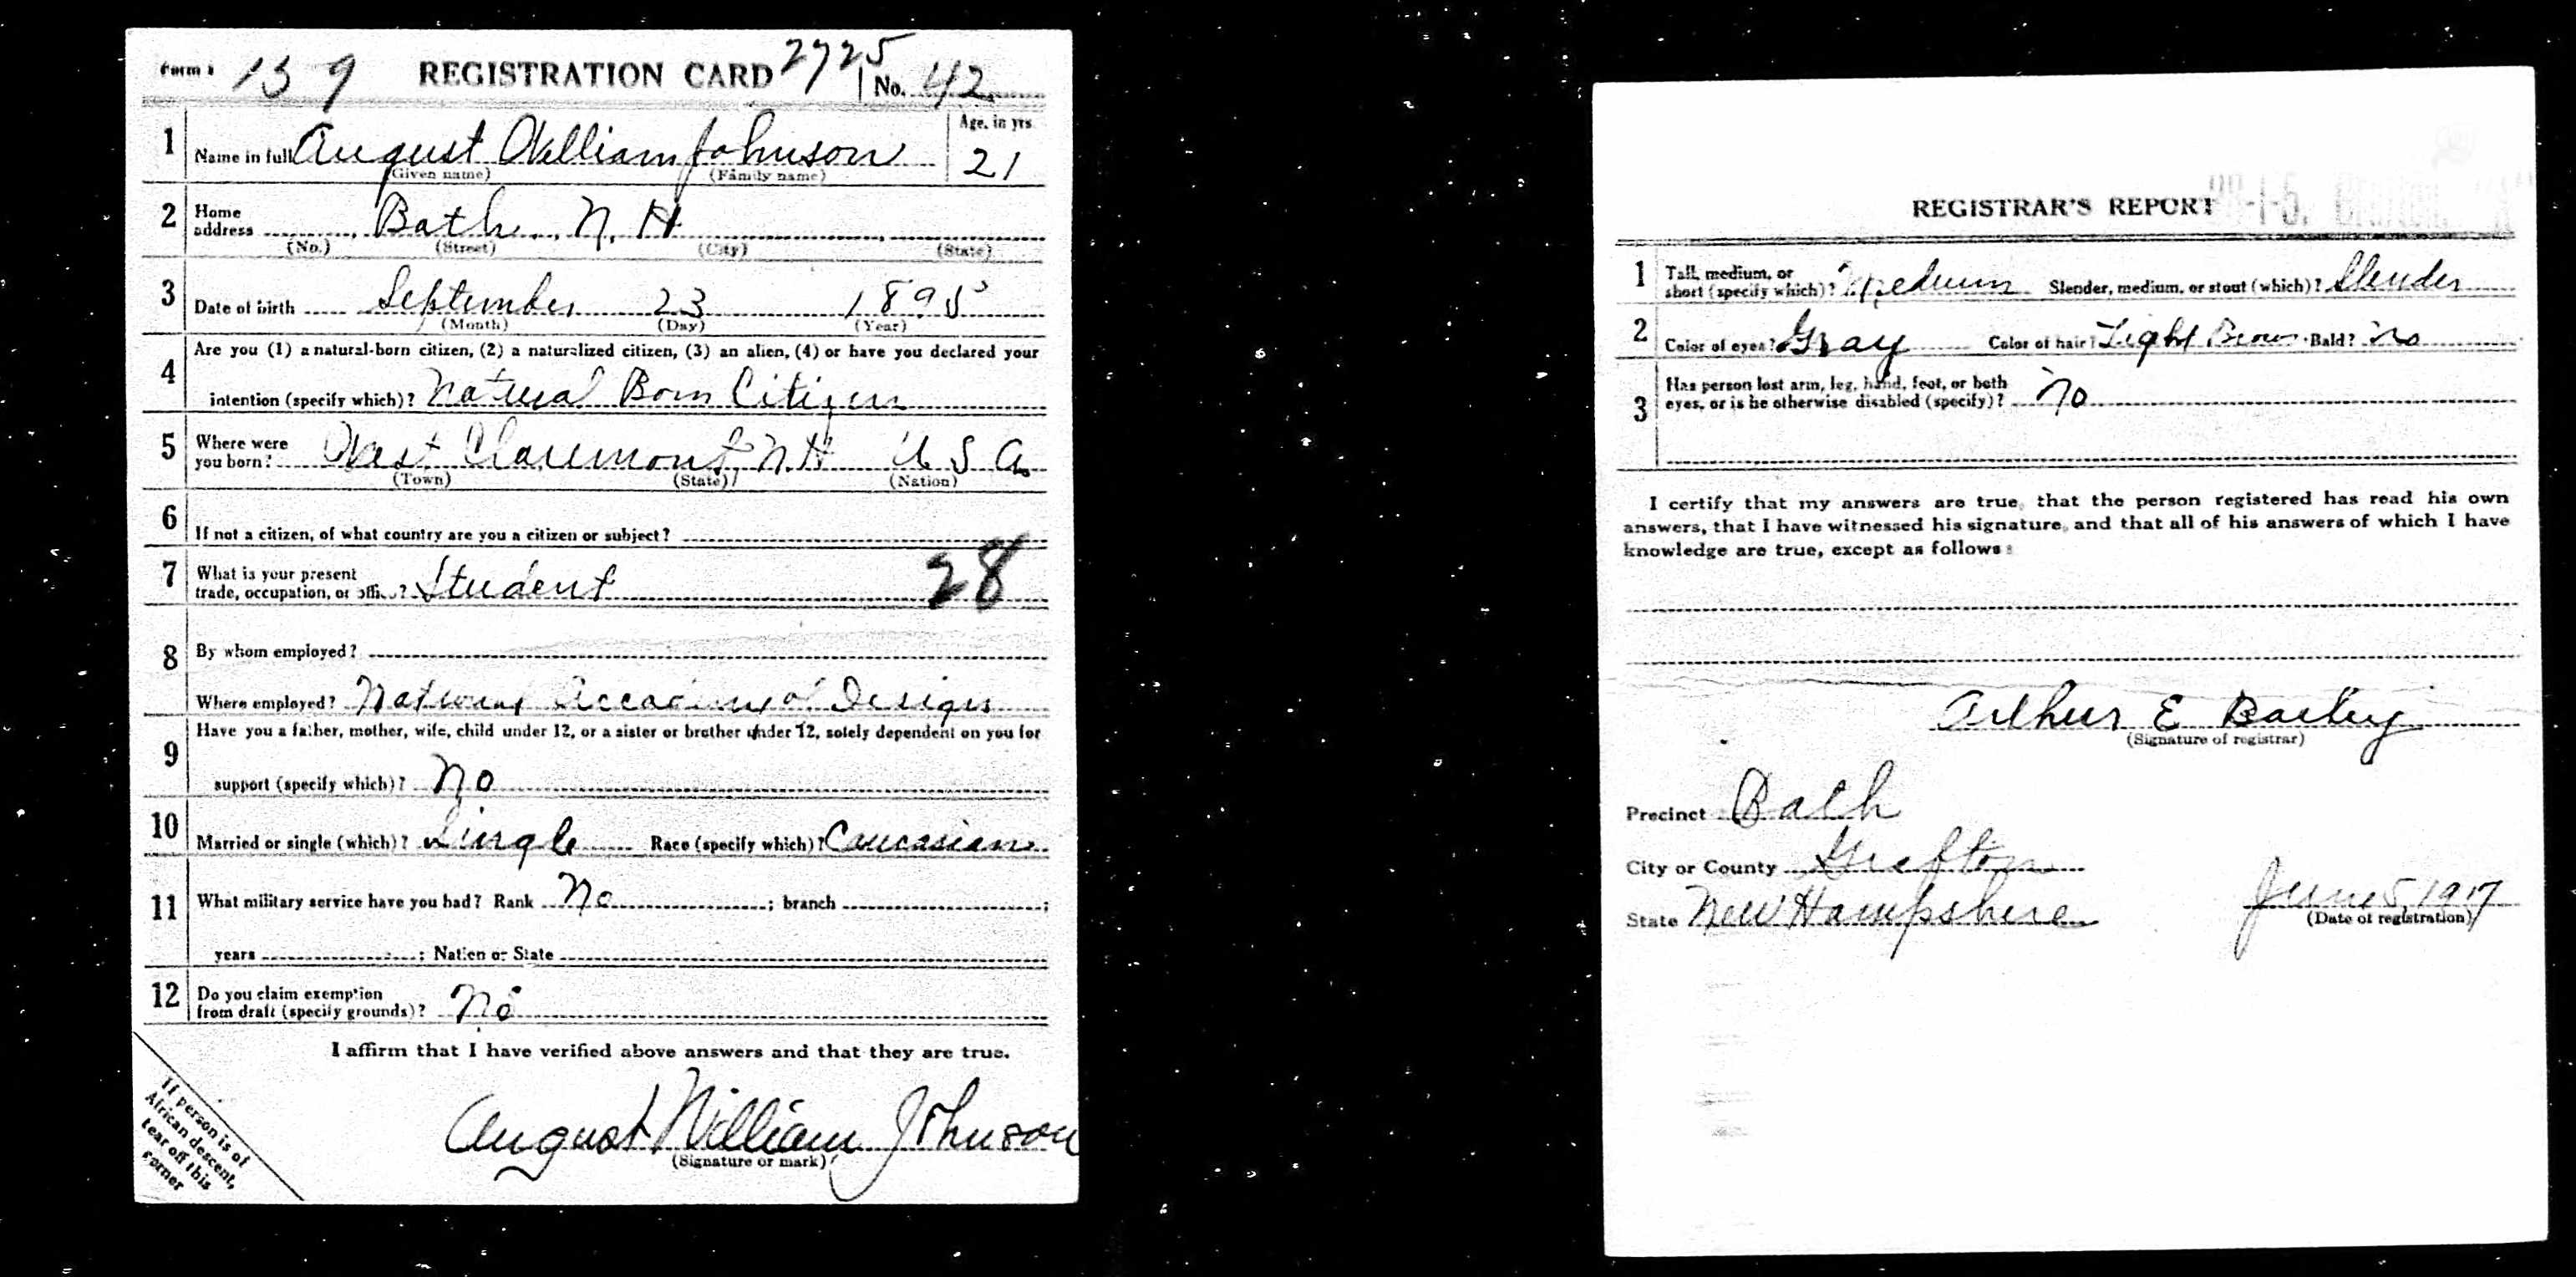 Form 1 139 REGISTRATION CARD 2725 No. 42
1 Name in full August William Johnson Age, in yrs 21
(Given name) (Family name)
2 Home address Bath, N. H
(No.) (Street) (City) (State)
3 Date of birth September 23 1895
(Month) (Day) (Year)
4 Are you (1) a natural-born citizen, (2) a naturalized citizen, (3) an alien, (4) or have you declared your
intention (specify which)? Natural Born Citizen
5 Where were you born? West Claremont, N.H U S A.
(Town) (State) (Nation)
6 If not a citizen, of what country are you a citizen or subject?
7 What is your present trade, occupation, or office? Student 28
8 By whom employed?
Where employed? National Accademy of Design
9 Have you a father, mother, wife, child under 12, or a sister or brother under 12, solely dependent on you for
support (specify which)? No
10 Married or single (which)? Single Race (specify which)? Caucasian
11 What military service have you had? Rank No ; branch ;
years ; Nation or State
12 Do you claim exemption from draft (specify grounds)? No
I affirm that I have verified above answers and that they are true.
August William Johnson
(Signature or mark)
If person is of
African descent,
tear off this
corner
REGISTRAR'S REPORT
1 Tall, medium, or short (specify which)? Medium Slender, medium, or stout (which)? Slender
2 Color of eyes? Gray Color of hair? Light Brown Bald? No
3 Has person lost arm, leg, hand, foot, or both eyes, or is he otherwise disabled (specify)? No
I certify that my answers are true, that the person registered has read his own
answers, that I have witnessed his signature, and that all of his answers of which I have
knowledge are true, except as follows:
Arthur E Bailey
(Signature of registrar)
Precinct Bath
City or County Grafton
State New Hampshire June 5, 1917
(Date of registration)